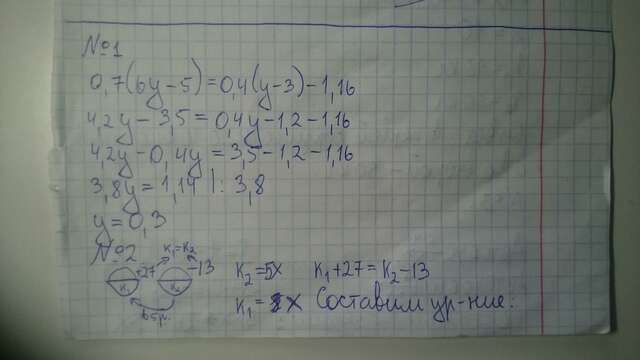 №1
0,7(6y-5)=0,4(y-3)-1,16
4,2y-3,5=0,4y-1,2-1,16
4,2y-0,4y=3,5-1,2-1,16
3,8y=1,14 |: 3,8
y=0,3
№2
K₁=K₂
+27 -13
K₁ K₂
в 5 р.
K₂=5x K₁+27=K₂-13
K₁=x Составим ур-ние: